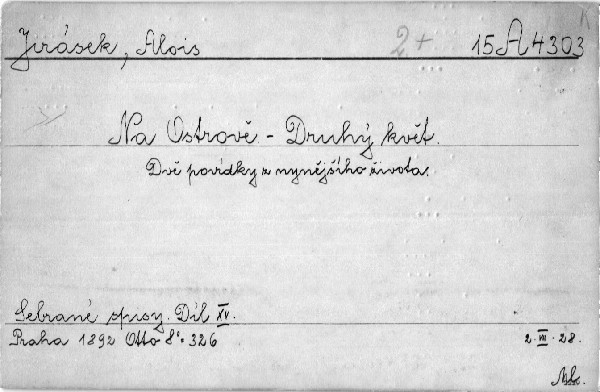 Jirásek, Alois 2+ 15 A 4303
Na Ostrově - Druhý květ.
Dvě povídky z nynějšího života.
Sebrané spisy. Díl XV.
Praha 1892 Otto 8° 326 2. VII. 28.